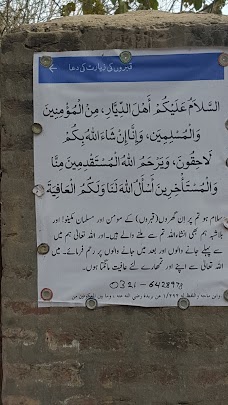 قبروں کی زیارت کی دعا
السَّلَامُ عَلَيْكُمْ أَهْلَ الدِّيَارِ، مِنَ الْمُؤْمِنِينَ
وَالْمُسْلِمِينَ، وَإِنَّا إِنْ شَاءَ اللهُ بِكُمْ
لَاحِقُونَ، وَيَرْحَمُ اللهُ الْمُسْتَقْدِمِينَ مِنَّا
وَالْمُسْتَأْخِرِينَ أَسْأَلُ اللهَ لَنَا وَلَكُمُ الْعَافِيَةَ
سلام ہو تم پر ان گھروں (قبروں) کے مومن اور مسلمان مکینو! اور
بلاشبہ ہم بھی انشاءاللہ تم سے ملنے والے ہیں۔ اور اللہ تعالی ہم میں
سے پہلے جانے والوں اور بعد میں جانے والوں پر رحم فرمائے۔ میں
اللہ تعالی سے اپنے اور تمھارے لئے عافیت مانگتا ہوں۔